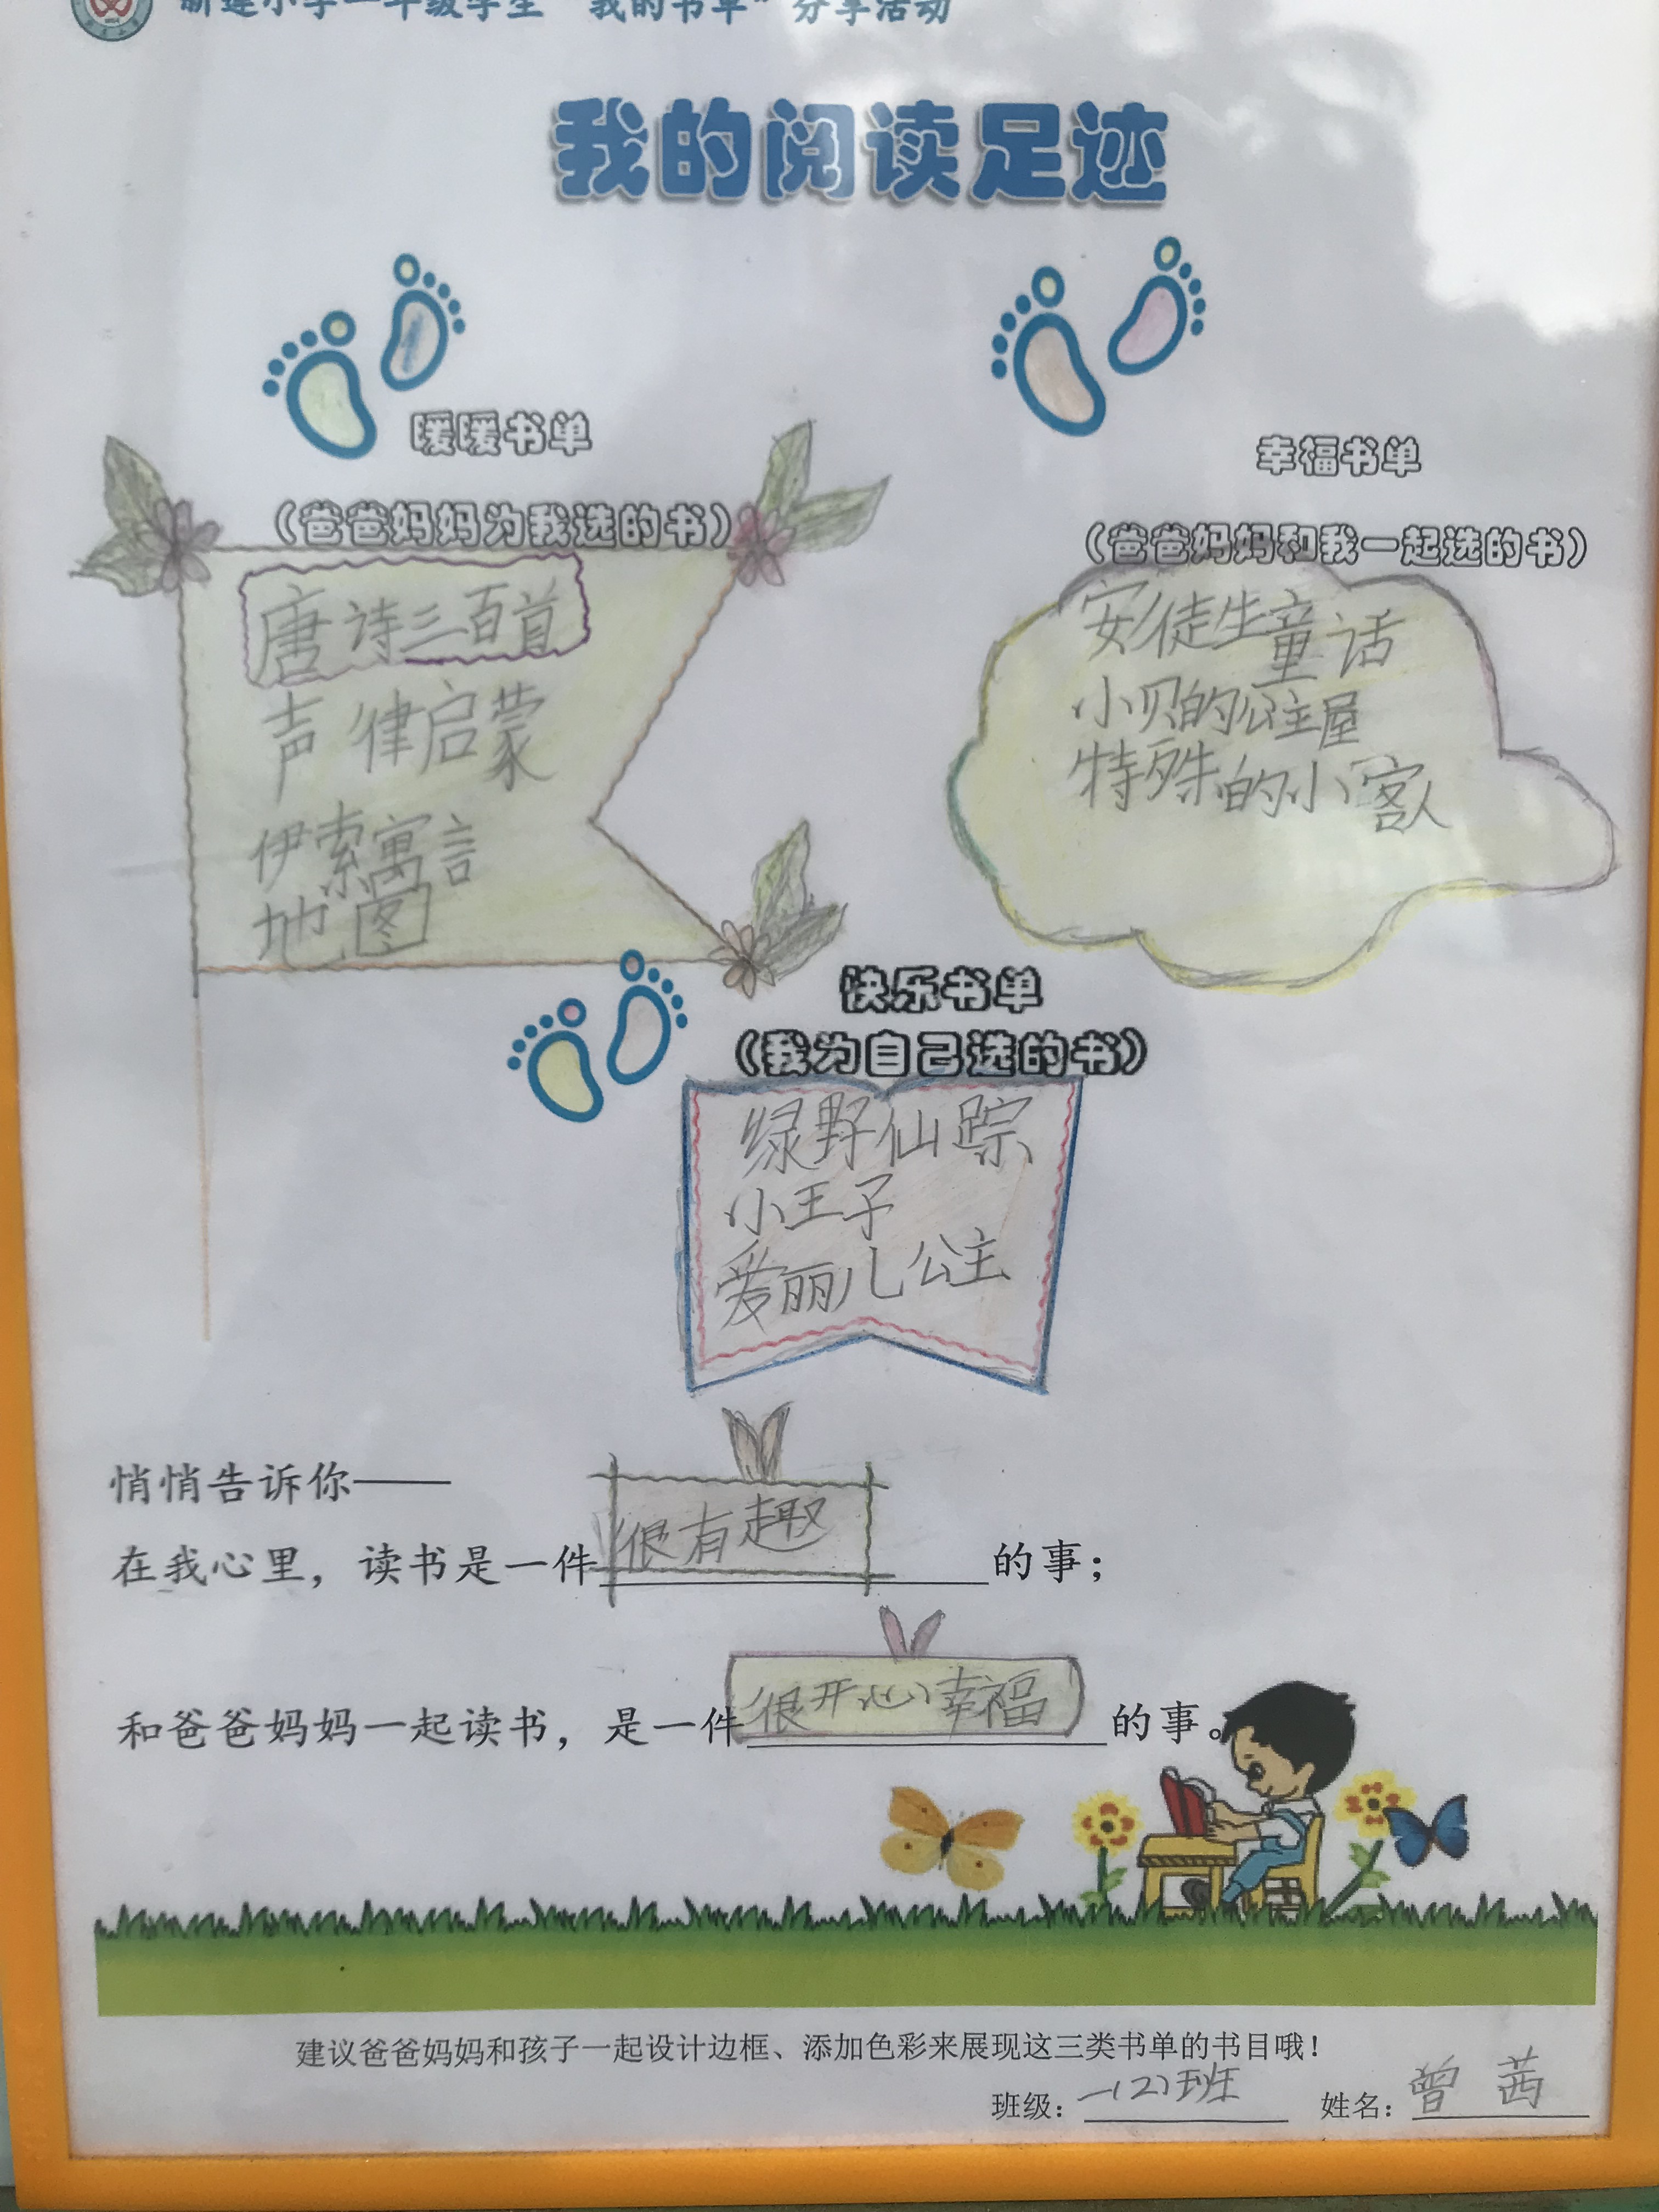 新建小学一年级学生“我的书单”分享活动
我的阅读足迹
暖暖书单
（爸爸妈妈为我选的书）
唐诗三百首
声律启蒙
伊索寓言
地图
幸福书单
（爸爸妈妈和我一起选的书）
安徒生童话
小贝的公主屋
特殊的小客人
快乐书单
（我为自己选的书）
绿野仙踪
小王子
爱丽儿公主
悄悄告诉你——
在我心里，读书是一件很有趣的事；
和爸爸妈妈一起读书，是一件很开心幸福的事。
建议爸爸妈妈和孩子一起设计边框、添加色彩来展现这三类书单的书目哦！
班级：一(2)班 姓名：曾茜